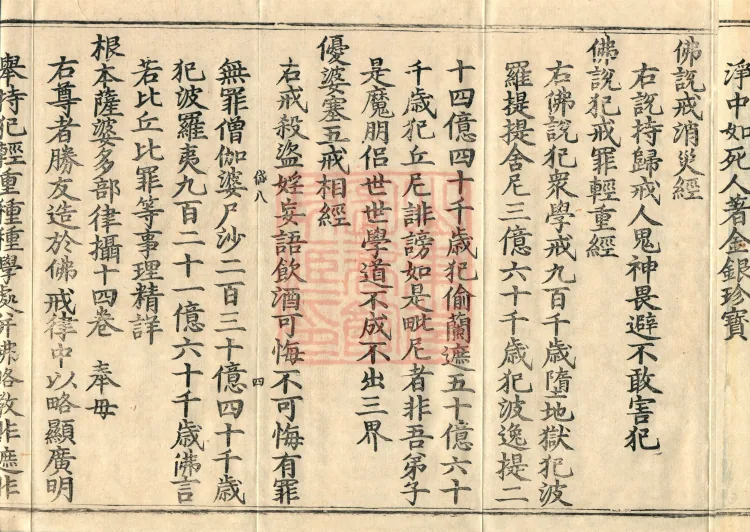 淨中如死人著金銀珍寶
佛說戒消災經
右說持歸戒人鬼神畏避不敢害犯
佛說犯戒罪輕重經
右佛說犯衆學戒九百千歲墮地獄犯波
羅提提舍尼三億六十千歲犯波逸提二
十四億四十千歲犯偷蘭遮五十億六十
千歲犯丘尼誹謗如是毗尼者非吾弟子
是魔朋侶世世學道不成不出三界
優婆塞五戒相經
右戒殺盜婬妄語飲酒可悔不可悔有罪
岱八
四
無罪僧伽婆尸沙二百三十億四十千歲
犯波羅夷九百二十一億六十千歲佛言
若比丘比罪等事理精詳
根本薩婆多部律攝十四卷 奉毋
右尊者勝友造於佛戒律中以略顯廣明
舉持犯輕重種種學處并佛略教非遮非